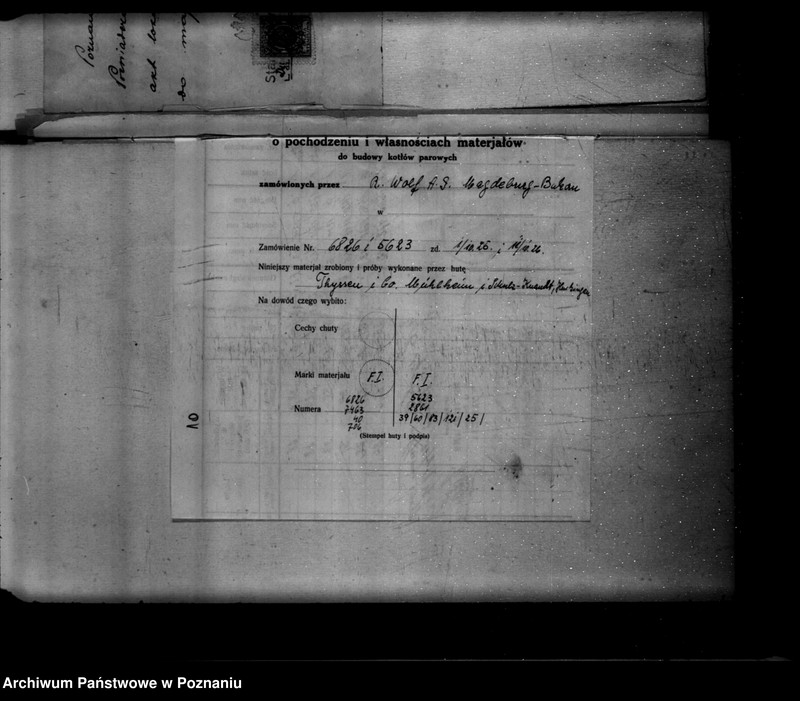 o pochodzeniu i własnościach materjałów
do budowy kotłów parowych
zamówionych przez R. Wolf A.G. Magdeburg-Bukau
w
Zamówienie Nr. 6826 i 5623 zd.
Niniejszy materjał zrobiony i próby wykonane przez hutę
Thyssen i Co. Mühlheim i
Na dowód czego wybito:
Cechy chuty
Marki materjału F.I. F.I.
6826 5623
Numera 7463 2861
40 39/60/83/121/25/
706
(Stempel huty i podpis)
10
Archiwum Państwowe w Poznaniu